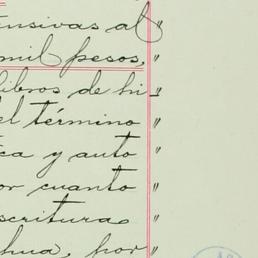 ensivas al "
mil pesos, "
libros de hi "
el término "
ca y auto "
or cuanto "
scritura "
hua, por "